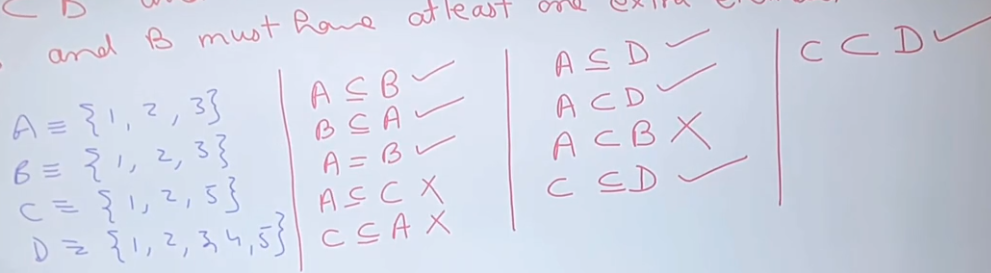 C D
and B must have atleast one extra
A = {1, 2, 3}
B = {1, 2, 3}
C = {1, 2, 5}
D = {1, 2, 3, 4, 5}
A ⊆ B ✓
B ⊆ A ✓
A = B ✓
A ⊆ C X
C ⊆ A X
A ⊆ D ✓
A ⊂ D ✓
A ⊂ B X
C ⊆ D ✓
C ⊂ D ✓